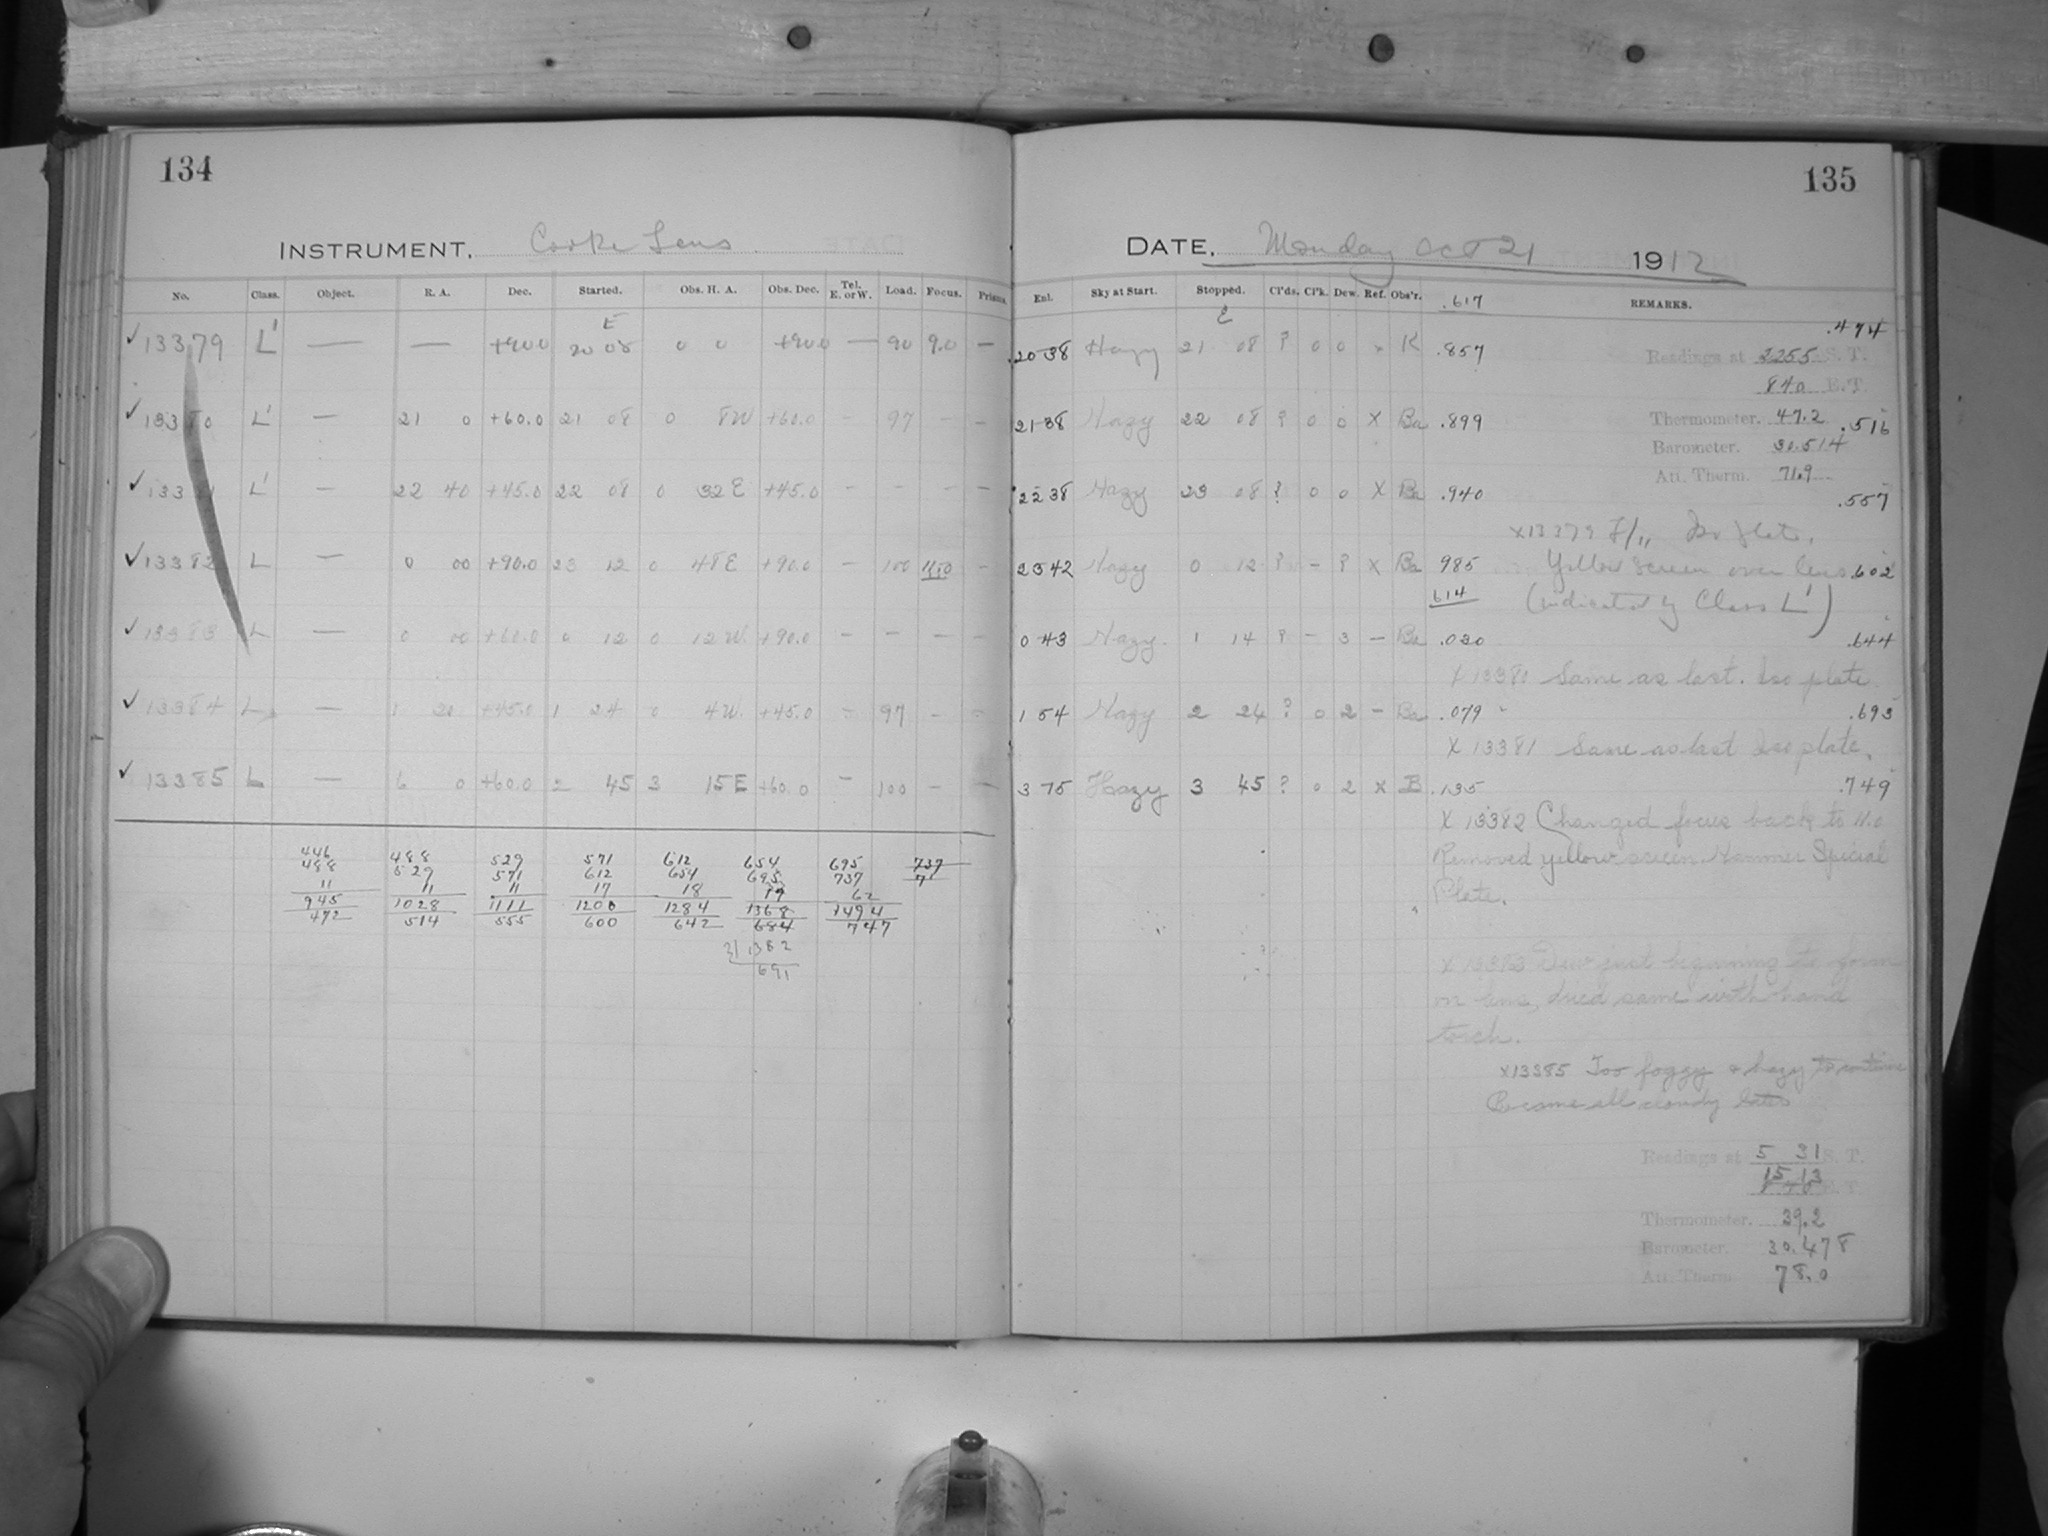 134
INSTRUMENT, Cooke Lens
No. Class. Object. R. A. Dec. Started. Obs. H. A. Obs. Dec. Tel. E. or W. Load. Focus. Prisms.
E
✓ 13379 L' — — +90.0 20 08 0 0 +90.0 — 90 9.0 —
✓ 13380 L' — 21 0 +60.0 21 08 0 8W +60.0 - 97 - -
✓ 13381 L' — 22 40 +45.0 22 08 0 32E +45.0 - - - -
✓ 13382 L — 0 00 +90.0 23 12 0 48E +90.0 - 100 11.0 -
✓ 13383 L — 0 00 +60.0 0 12 0 12W. +90.0 - - - -
✓ 13384 L — 1 20 +45.0 1 24 0 4W. +45.0 - 97 - -
✓ 13385 L — 6 0 +60.0 2 45 3 15E +60.0 - 100 - -
446 488 529 571 612 654 695 737
488 529 571 612 654 695 737 7
11 11 11 17 18 19 62
945 1028 1111 1200 1284 1368 1494
472 514 555 600 642 684 747
2| 1382
691
135
DATE, Monday Oct 21 1912
Enl. Sky at Start. Stopped. Cl'ds. Cl'k. Dew. Ref. Obs'r. .617 REMARKS.
E
20 38 Hazy 21 08 ? 0 0 x K .857 .474
Readings at 2255 S. T.
840 E. T.
21 38 Hazy 22 08 ? 0 0 X Ba .899 Thermometer. 47.2 .516
Barometer. 30.514
Att. Therm. 71.9
22 38 Hazy 23 08 ? 0 0 X Ba .940 .557
X13379 F/11 Iso plate.
23 42 Hazy 0 12 ? - ? X Ba 985 Yellow screen over lens .602
614 (indicated by Class L')
0 43 Hazy. 1 14 ? - 3 - Ba .020 .644
X 13381 Same as last. Iso plate
1 54 Hazy 2 24 ? 0 2 - Ba .079 .693
X 13381 Same as last Iso plate.
3 15 Hazy 3 45 ? 0 2 x B .135 .749
X 13382 Changed focus back to 11.0
Removed yellow screen. Hammer Special
Plate.
X 13383 Dew just beginning to form
on lens, dried same with hand
torch.
X13385 Too foggy & hazy to continue
Became all cloudy later
Readings at 5 31 S. T.
15 13 E. T.
Thermometer. 39.2
Barometer. 30.478
Att. Therm. 78.0